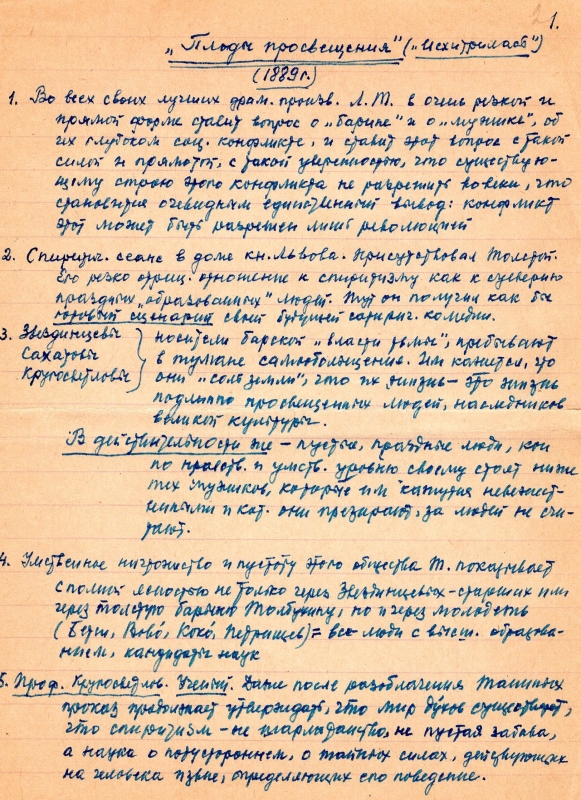 1.
„Плоды просвещения" („Исхитрилась")
(1889 г.)
1. Во всех своих лучших драм. произв. Л.Т. в очень резкой и
прямой форме ставит вопрос о „барине" и о „мужике", об
их глубоком соц. конфликте, и ставит этот вопрос с такой
силой и прямотой, с такой уверенностью, что существую-
щему строю этого конфликта не разрешить вовеки, что
становится очевидным единственный вывод: конфликт
этот может быть разрешен лишь революцией
2. Спиритич. сеанс в доме кн. Львова. Присутствовал Толстой.
Его резко отриц. отношение к спиритизму как к суеверию
праздных „образованных" людей. Тут он получил как бы
готовый сценарий своей будущей сатирич. комедии.
3. Звездинцевы
Сахатовы
Кругосветловы
носители барской „власти тьмы", пребывают
в тумане самообольщения. Им кажется, что
они „соль земли", что их жизнь – это жизнь
подлинно просвещенных людей, наследников
великой культуры.
В действительности же – пустые, праздные люди, кои
по нравств. и умств. уровню своему стоят ниже
тех мужиков, которые им кажутся невежест-
венными и кот. они презирают, за людей не счи-
тают.
4. Умственное ничтожество и пустоту этого общества Т. показывает
с полной ясностью не только через Звездинцевых-старших или
через толстую барыню Толбухину, но и через молодежь
(Бетси, Вово́, Коко́, Петрищев) = все люди с высш. образова-
нием, кандидаты наук
5. Проф. Кругосветлов. Ученый. Даже после разоблачения Таниных
проказ продолжает утверждать, что мир ду́хов существует,
что спиритизм – не шарлатанство, не пустая забава,
а наука о потустороннем, о тайных силах, действующих
на человека извне, определяющих его поведение.